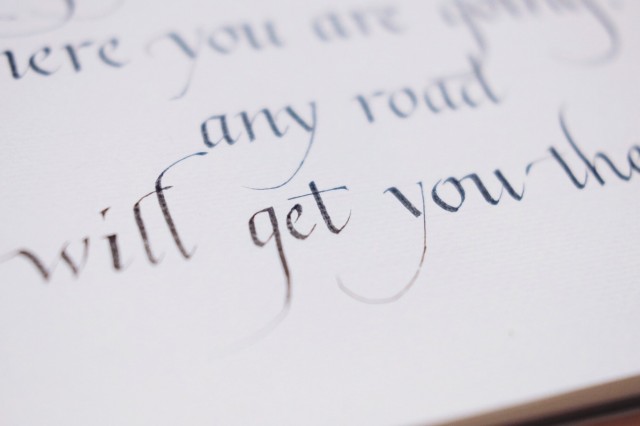 here you are going
any road
will get you the